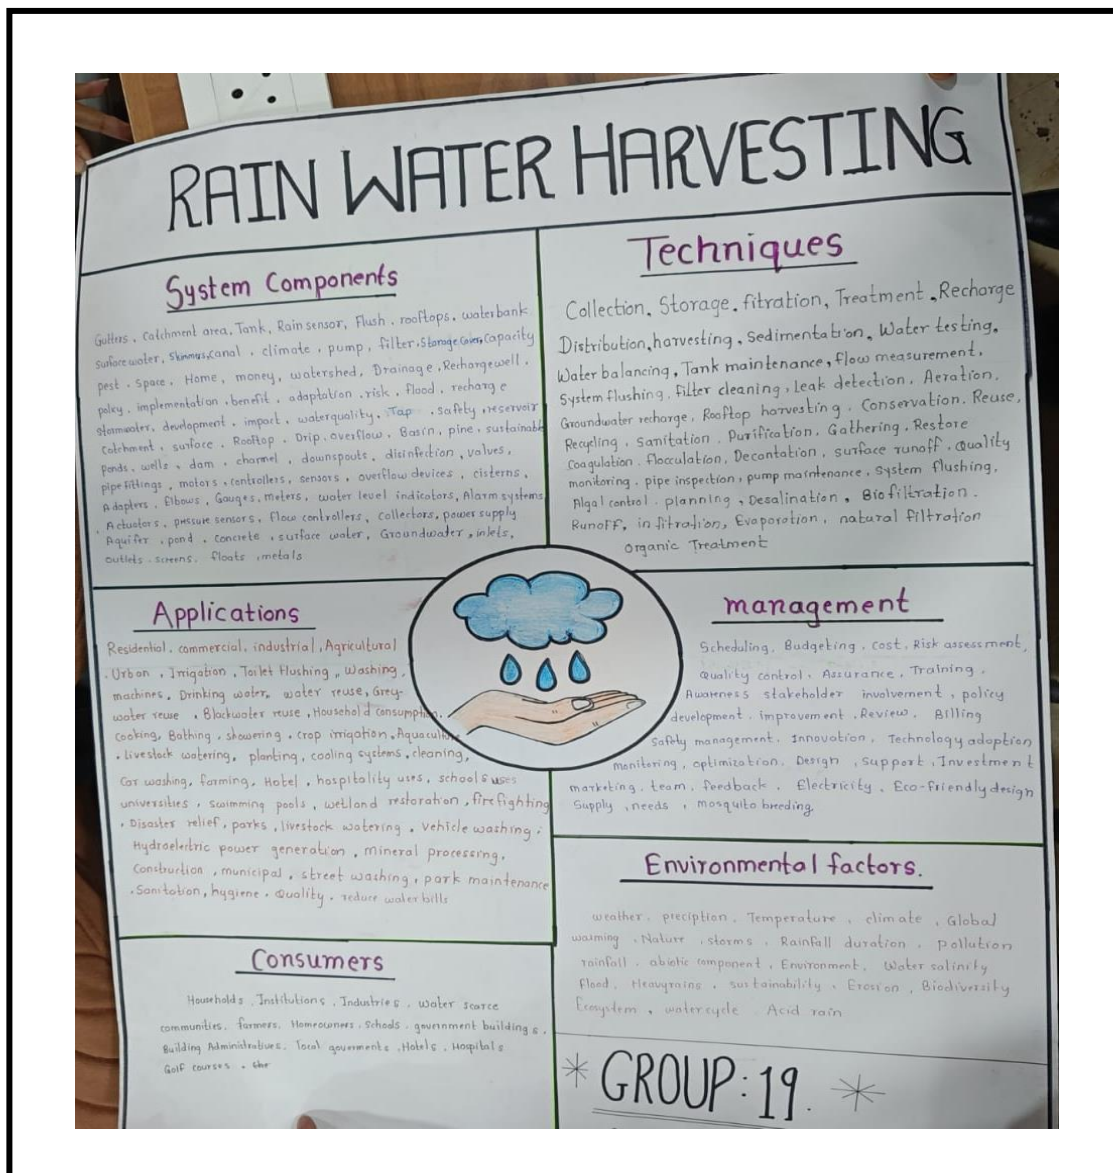 RAIN WATER HARVESTING
System Components
Gutters, Catchment area, Tank, Rain sensor, Flush, rooftops, waterbank
Surface water, canal, climate, pump, filter, Storage Capacity
pest, Space, Home, money, watershed, Drainage, Rechargewell,
policy, implementation, benefit, adaptation, risk, flood, recharge
Stormwater, development, import, waterquality, Tap, safety, reservoir
Catchment, surface, Rooftop, Drip, overflow, Basin, pine, sustainable
Ponds, wells, dam, channel, downspouts, disinfection, valves,
pipe fittings, motors, controllers, sensors, overflow devices, cisterns,
Adapters, Elbows, Gauges, meters, water level indicators, Alarm systems
Actuators, pressure sensors, flow controllers, collectors, power supply
Aquifer, pond, concrete, surface water, Groundwater, inlets,
outlets, screens, floats, metals
Techniques
Collection, Storage, fitration, Treatment, Recharge
Distribution, harvesting, Sedimentation, Water testing,
Water balancing, Tank maintenance, flow measurement,
System flushing, filter cleaning, Leak detection, Aeration,
Groundwater recharge, Rooftop harvesting, Conservation, Reuse,
Recycling, Sanitation, Purification, Gathering, Restore
Coagulation, Flocculation, Decantation, surface runoff, Quality
monitoring, pipe inspection, pump maintenance, System flushing,
Algal control, planning, Desalination, Biofiltration,
Runoff, infitration, Evaporation, natural filtration
Organic Treatment
Applications
Residential, commercial, industrial, Agricultural
, Urban, Irrigation, Toilet Flushing, Washing,
machines, Drinking water, water reuse, Grey-
water reuse, Blackwater reuse, Household consumption,
Cooking, Bathing, showering, crop irrigation, Aquaculture
, Livestock watering, planting, cooling systems, cleaning,
Car washing, farming, Hotel, hospitality uses, schools uses
universities, swimming pools, wetland restoration, firefighting
, Disaster relief, parks, livestock watering, vehicle washing,
Hydroelectric power generation, mineral processing,
Construction, municipal, street washing, park maintenance
, Sanitation, hygiene, Quality, reduce water bills
management
Scheduling, Budgeting, cost, Risk assessment,
Quality control, Assurance, Training,
Awareness stakeholder involvement, policy
development, improvement, Review, Billing
Safety management, Innovation, Technology adoption
monitoring, optimization, Design, support, Investment
marketing, team, feedback, Electricity, Eco-Friendly design
Supply, needs, mosquito breeding,
Environmental factors.
weather, preciption, Temperature, climate, Global
warming, Nature, storms, Rainfall duration, Pollution
rainfall, abiotic component, Environment, Water salinity
Flood, Heavyrains, sustainability, Erosion, Biodiversity
Ecosystem, watercycle, Acid rain
Consumers
Households, Institutions, Industries, water scarce
communities, farmers, Homeowners, Schools, government buildings,
Building Administratives, governments, Hotels, Hospitals
Golf courses,
* GROUP: 19. *